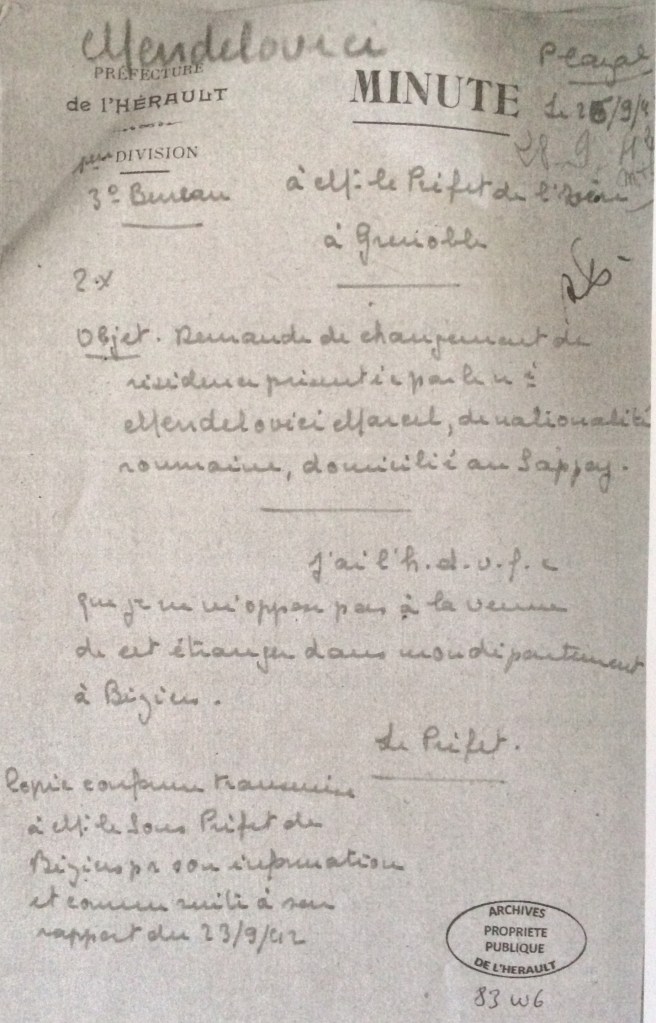 Mendelovici
PRÉFECTURE
de l'HÉRAULT
DIVISION
3e Bureau
MINUTE
Le 25/9/4
28 9 42
à M. le Préfet de l'Isère
à Grenoble
Objet. Demande de changement de
résidence présentée par le né
Mendelovici Marcel, de nationalité
roumaine, domicilié au Sappey.
J'ai l'h. d. v. f. c
que je ne m'oppose pas à la venue
de cet étranger dans mon département
à Béziers.
Le Préfet.
Copie conforme transmise
à M. le Sous Préfet de
Béziers pr son information
et comme suite à son
rapport du 23/9/42
ARCHIVES
PROPRIETE
PUBLIQUE
DE L'HERAULT
83 W6